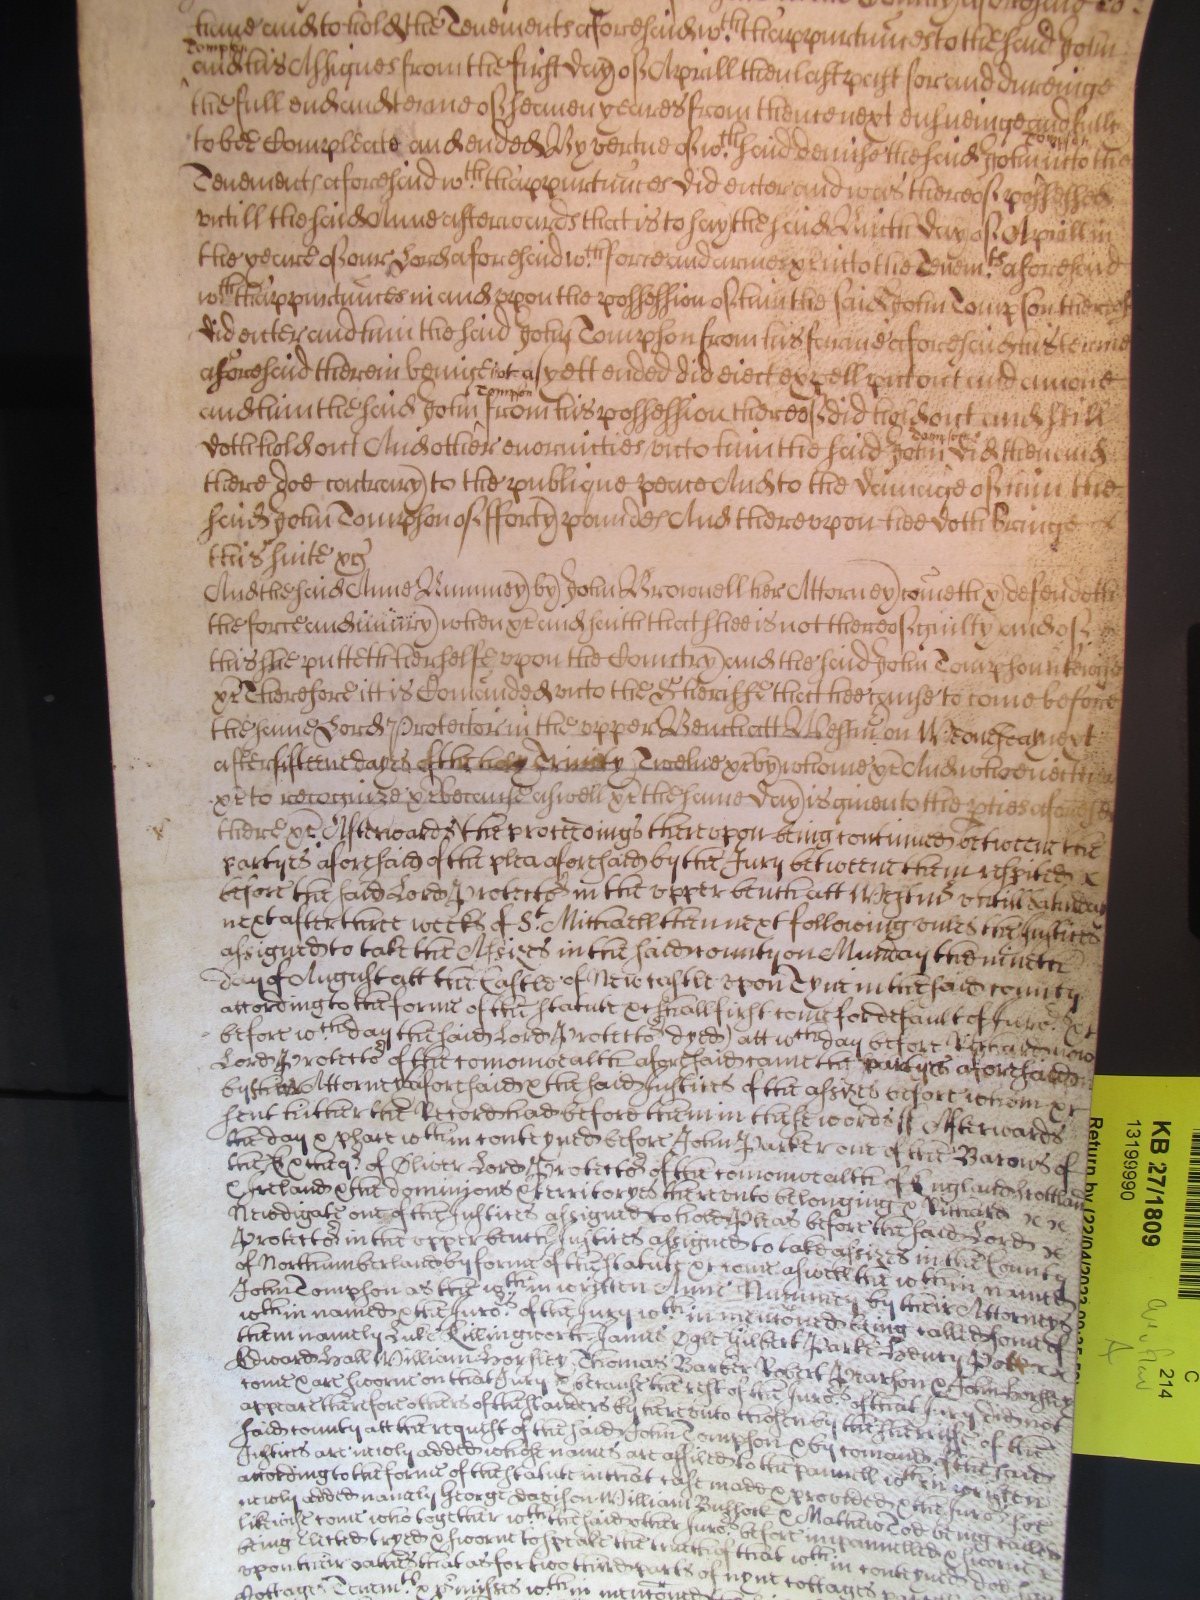 hame and to hold the Tenements aforesaid wth thappurtunces to the said John
Tompson
and his Assignes from the first day of Aprill then last past for and dureinge
the full end and terme of seaven yeares from thence next ensueinge and fully
to bee Compleate and ended By vertue of wch said demise the said John into the
Tompson
Tenements aforesaid wth thappurtunces did enter and was thereof possessed
vntill the said Anne afterwards that is to say the said Ninth day of Aprill in
the yeare of our Lord aforesaid wth force and armes &c into the Tenemts aforesaid
wth thappurtunces in and vpon the possession of him the said John Tompson thereof
did enter and him the said John Tompson from his farme aforesaid his terme
aforesaid therein beinge not as yett ended did eiect expell putt out and amove
Tompson
and him the said John from his possession thereof did hold out and still
doth hold out And other enormities vnto him the said John did then and
Tompson
there doe contrary to the publique peace And to the damage of him the
said John Tompson of fforty pounds And therevpon hee doth bringe
this suite &c
And the said Anne Mummey by John Brownell her Attorney cometh & defendeth
the force and iniury when &c and saith that shee is not thereof guilty and of
this she putteth herselfe vpon the Country and the said John Tompson likewise
&c Therefore itt is Comanded vnto the Sheriffe that hee cause to come before
the same Lord Protector in the vpper Bench att Westmr on Wensday next
after fifteene dayes of the holy Trinity Twelve &c by whome &c And who neither
&c to recognize &c because aswell &c the same day is given to the pties aforesaid
there &c Afterwards the proceedings therevpon being continued betweene the
partyes aforesaid of the plea aforesaid by the Jury betweene them respited &
before the said Lord Protector in the vpper bench att Westmr vntill Saturday
next after three weeks of St Michaell then next following vnles the Justices
assigned to take the Assizes in the said county on Munday the nineth
day of August att the Castle of Newcastle vpon Tyne in the said county
according to the forme of the statute &c shall first come for default of Juro &c
before wch day the said Lord Protector dyed att wch day before Richard now
Lord Protector of the comonwealth aforesaid came the partyes aforesaid
by their Attorneys aforesaid & the said Justices of the assizes before whom &c
sent hither their Record had before them in these words Afterwards
the day & place within conteyned before John Parker one of the Barons of
the Excheqr of Oliver Lord Protector of the comonwealth of England Scotland
& Ireland & the dominions & territoryes therevnto belonging & Richard
Newdigate one of the Justices assigned to hold Pleas before the said Lord
Protector in the vpper bench Justices assigned to take assizes in the County
of Northumberland by forme of the statute &c come aswell the within named
John Tompson as the within written Anne Mummey by their Attorneys
within named & the Juro of the Jury within mencioned being called some of
them namely Luke Killingworth James Ogle Gilbert Parke Henry Potter
Edward Hall William Horsley Thomas Barker Robert Pearson & John Horsley
come & are sworne on that Jury & because the rest of the Juro of that Jury did not
appeare therefore others of the standers by herevnto chosen by the sheriffe of the
said county att the request of the said John Tompson & by comand of the said
Justices are newly added whose names are affiled to the pannell within written
according to the forme of the statute in that case made & provided & the Juro soe
newly added namely George Davison William Bullock & Mathew being called
likewise come who together with the said other Juro before impannelled & sworne
being elected tryed & sworne to speake the truth of that within conteyned doe say
vpon their oathes that as for two third parts of nyne cottages
Cottages Tenemts & pmisses within mencioned
KB 27/1809
13199990
Return by (22/04/2023
C
214